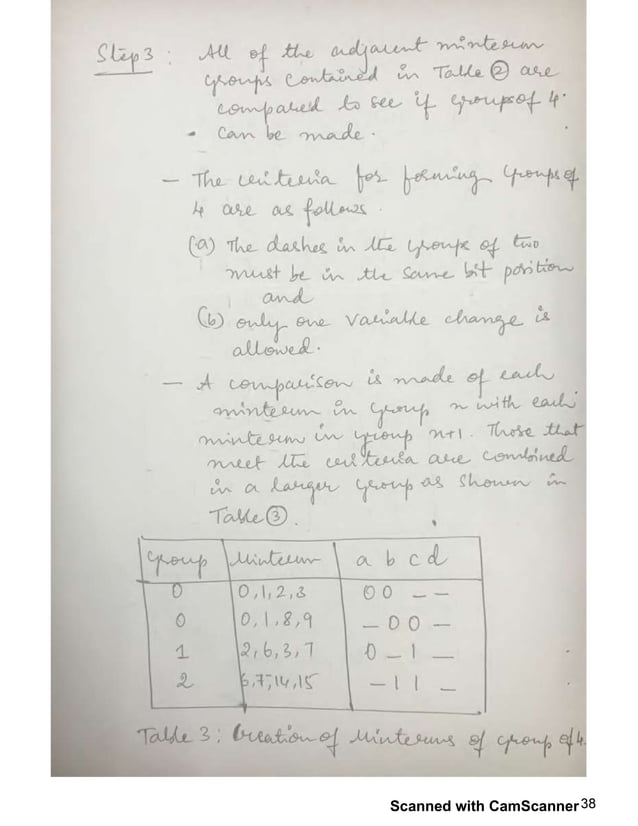 Step 3 : All of the adjacent minterm
groups contained in Table ② are
compared to see if groups of 4.
• can be made.
— The criteria for forming Groups of
4 are as follows.
(a) The dashes in the groups of two
must be in the same bit position
and
(b) only one variable change is
allowed.
— A comparison is made of each
minterm in group n with each
minterm in group n+1. Those that
meet the criteria are combined
in a larger group as shown in
Table ③.
Group Minterm a b c d
0 0,1,2,3 0 0 — —
0 0,1,8,9 — 0 0 —
1 2,6,3,7 0 — 1 —
2 6,7,14,15 — 1 1 —
Table 3 : Creation of Minterms of group of 4.
Scanned with CamScanner 38